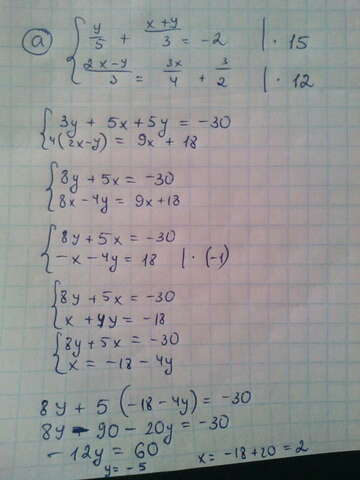 a) { y/5 + (x+y)/3 = -2 | · 15
(2x-y)/3 = 3x/4 + 3/2 | · 12
{ 3y + 5x + 5y = -30
4(2x-y) = 9x + 18
{ 8y + 5x = -30
8x - 4y = 9x + 18
{ 8y + 5x = -30
-x - 4y = 18 | · (-1)
{ 8y + 5x = -30
x + 4y = -18
{ 8y + 5x = -30
x = -18 - 4y
8y + 5(-18 - 4y) = -30
8y - 90 - 20y = -30
-12y = 60
y = -5 x = -18 + 20 = 2